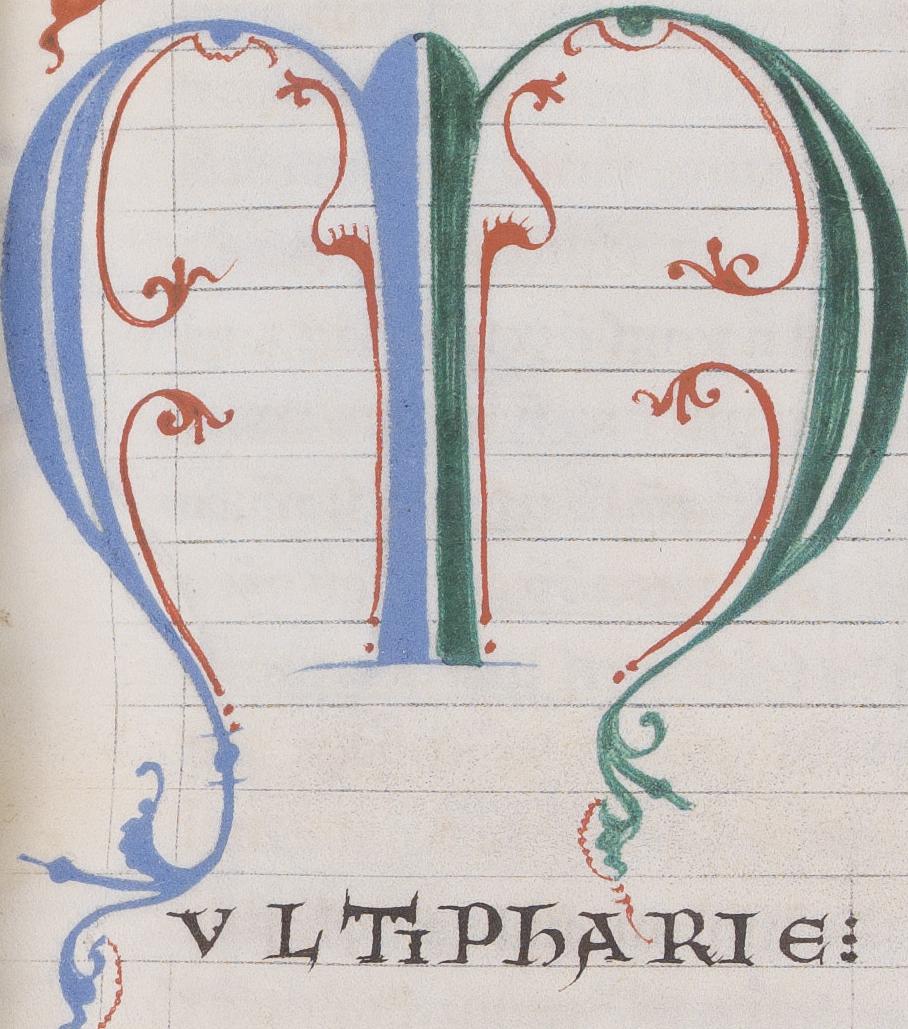 M
VLTIPhARIE⁝